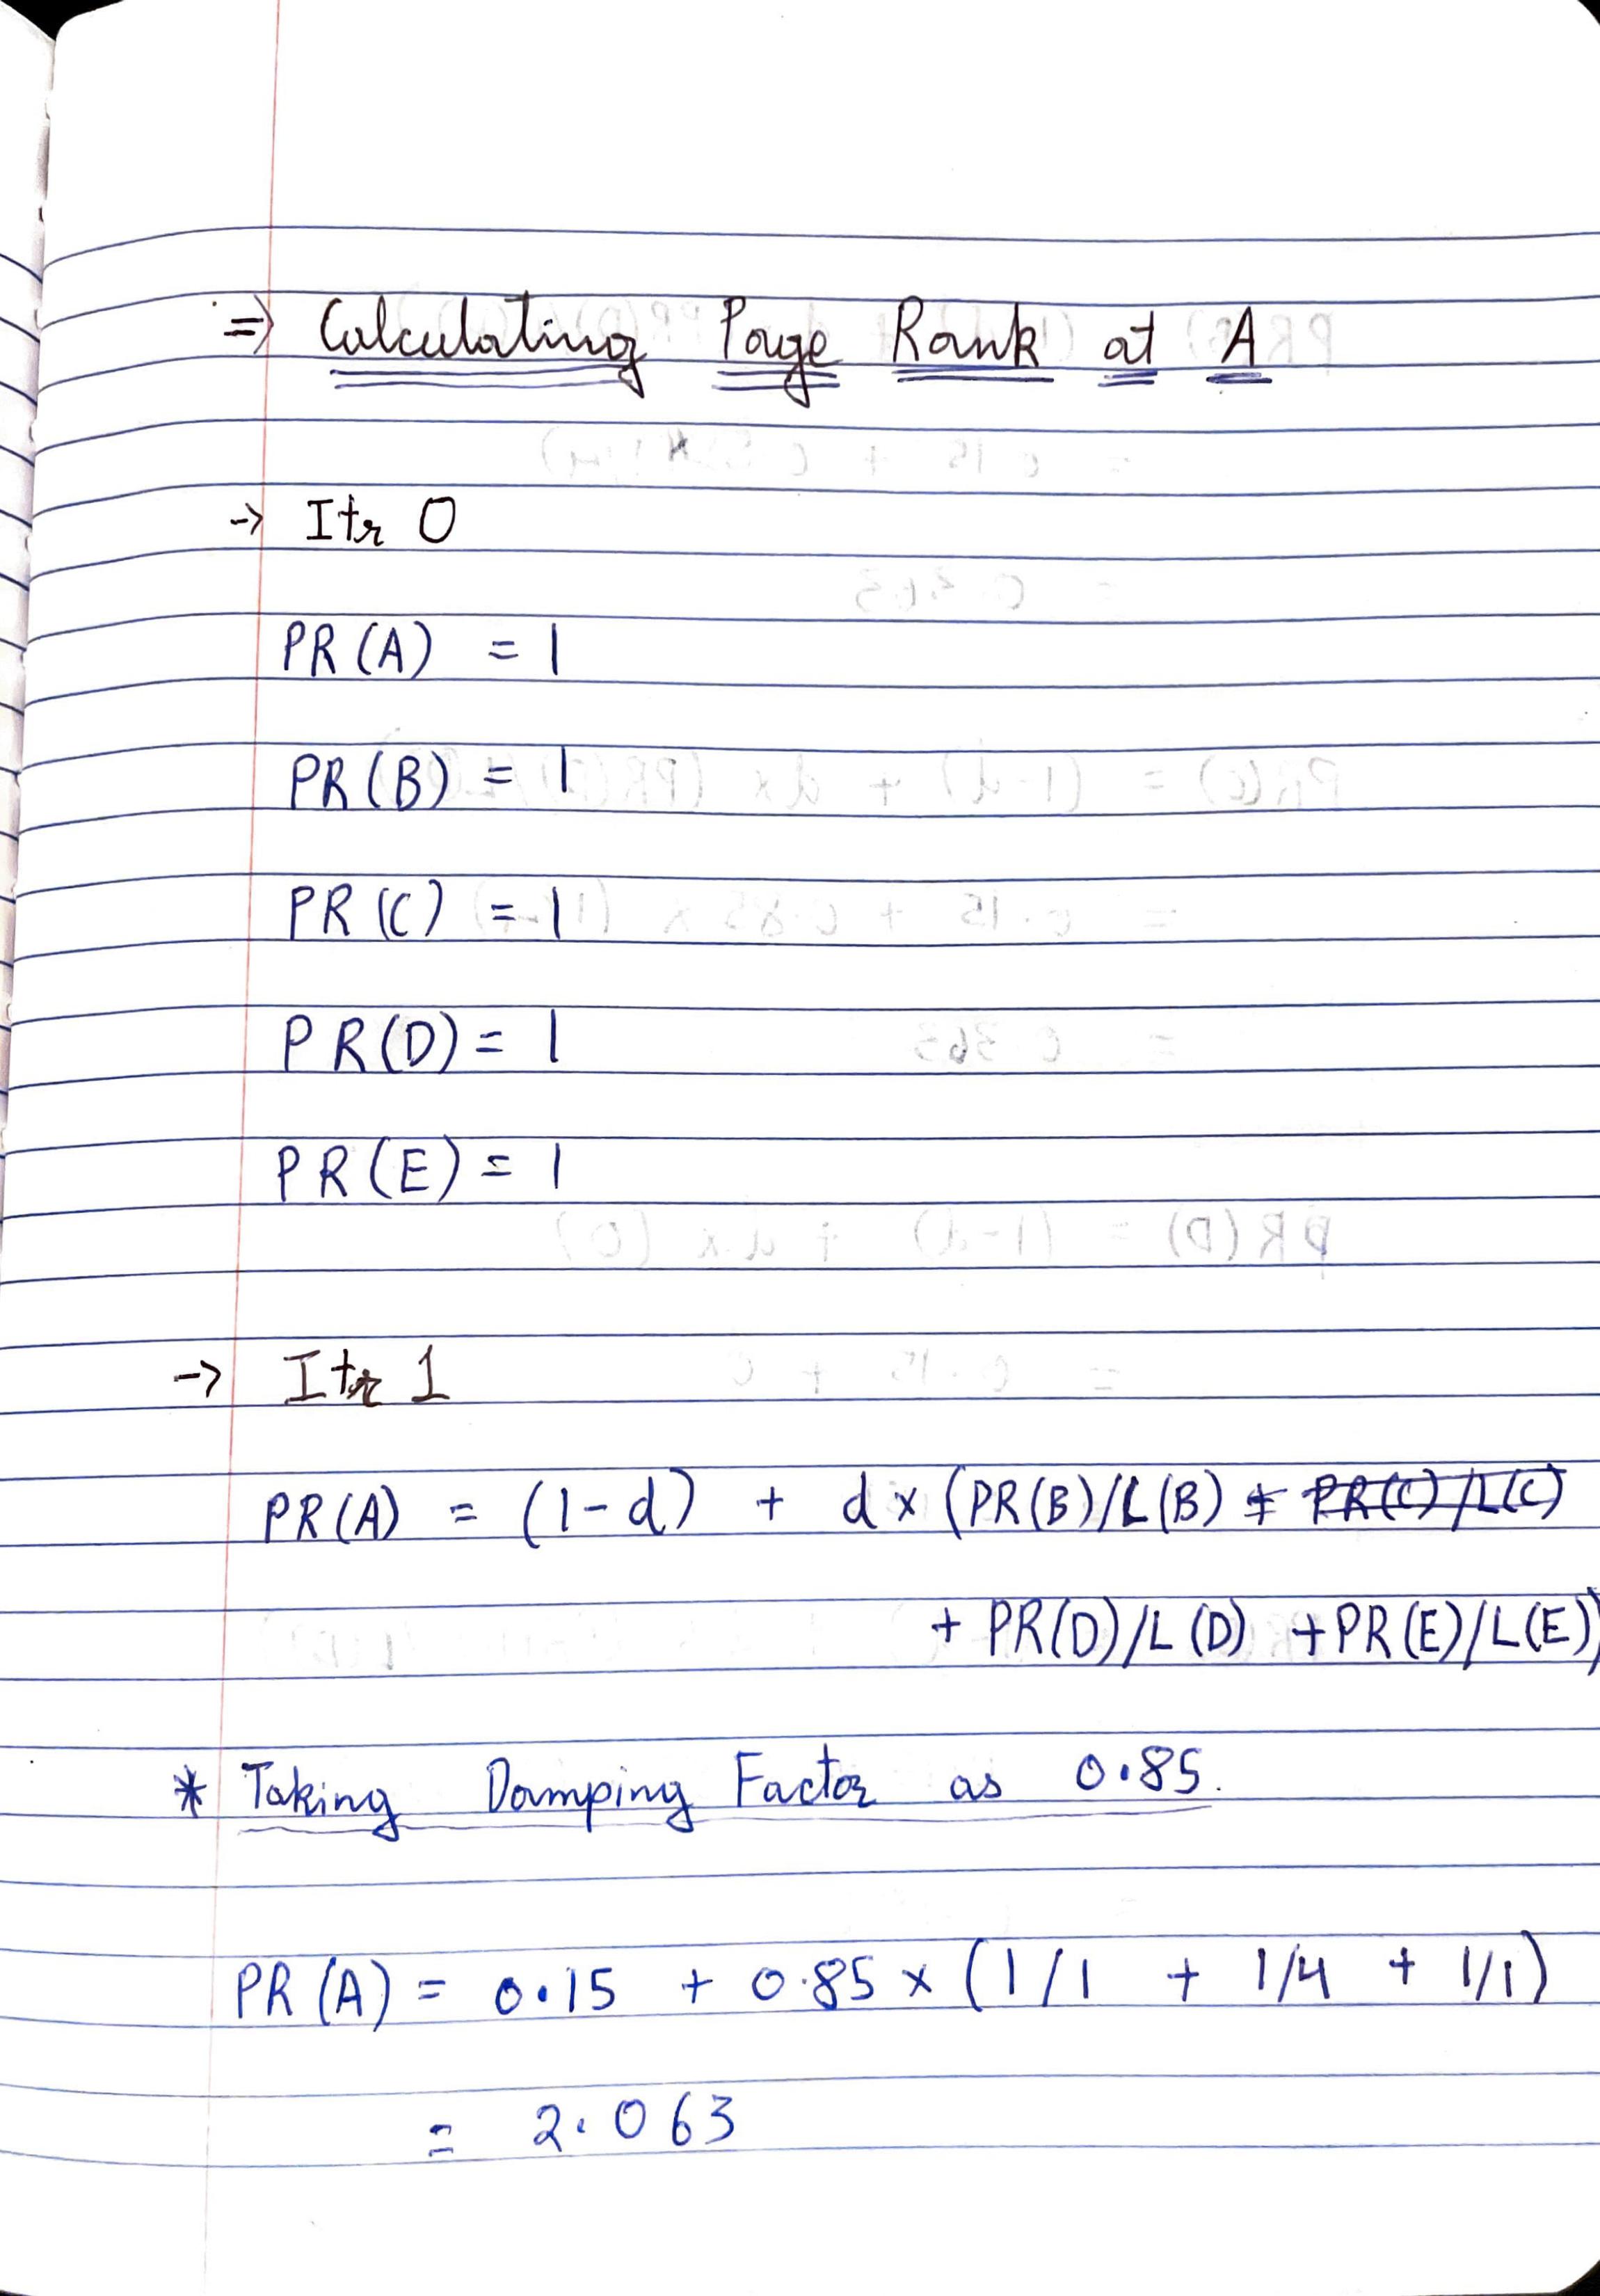 => Calculating Page Rank at A
-> Itr 0
PR(A) = 1
PR(B) = 1
PR(C) = 1
PR(D) = 1
PR(E) = 1
-> Itr 1
PR(A) = (1-d) + d x (PR(B)/L(B) + PR(C)/L(C)
+ PR(D)/L(D) + PR(E)/L(E))
* Taking Damping Factor as 0.85.
PR(A) = 0.15 + 0.85 x (1/1 + 1/4 + 1/1)
= 2.063